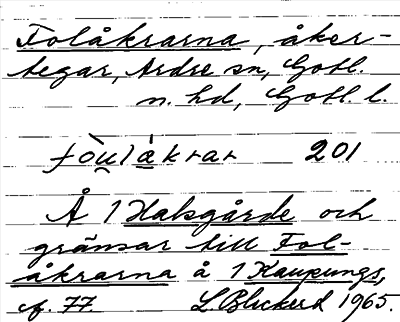 Folåkrarna, åker-
tegar, Ardre sn, Gotl.
n. hd, Gotl. l.
fòu̯lå̀krar 201
Å 1 Halsgårde och
gränsar till Fol-
åkrarna å 1 Kaupungs,
cf. 77. L. Blickert 1965.